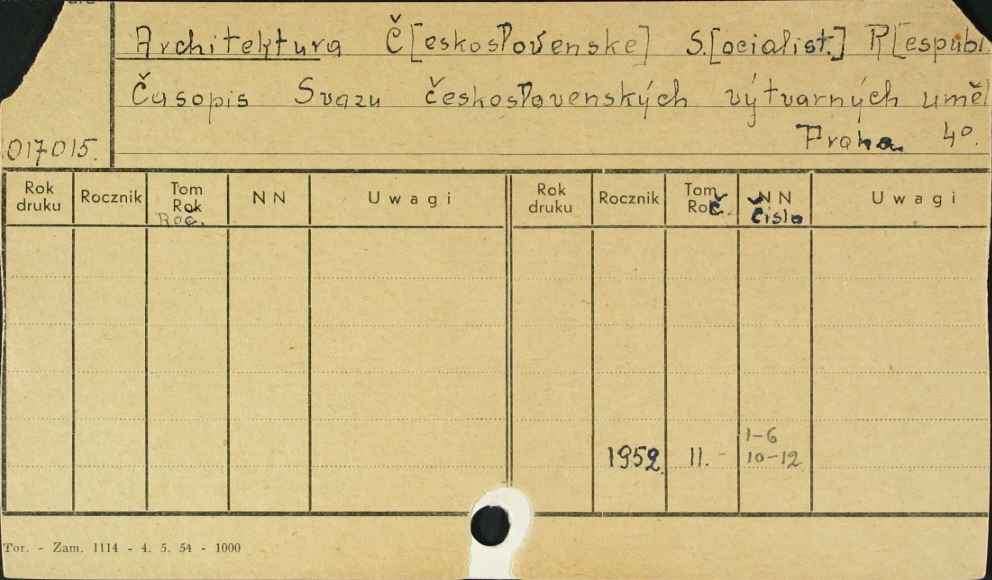 Architektura Č[eskoslovenske] S.[ocialist.] R[epubl
Časopis Svazu československých výtvarných uměl
Praha 4o.
017015.
Rok druku Rocznik Tom Rok Roč. NN Uwagi Rok druku Rocznik Tom Roč. NN čislo Uwagi
1952 11. - 1-6
10-12
Tor. - Zam. 1114 - 4. 5. 54 - 1000